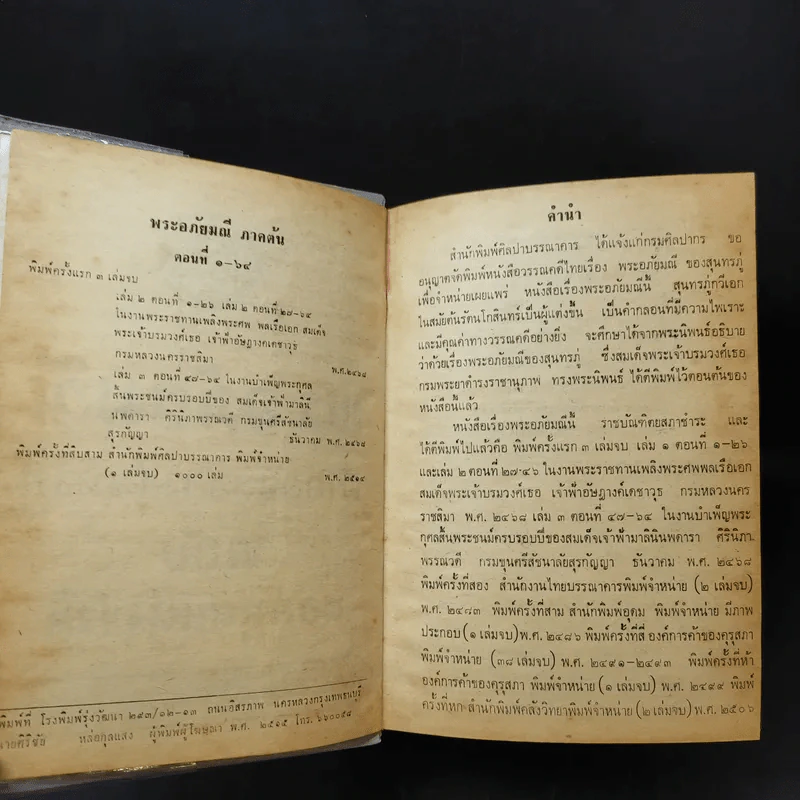 พระอภัยมณี ภาคต้น
ตอนที่ ๑-๖๔
พิมพ์ครั้งแรก ๓ เล่มจบ
เล่ม ๒ ตอนที่ ๑-๒๖ เล่ม ๒ ตอนที่ ๒๗-๖๔
ในงานพระราชทานเพลิงพระศพ พลเรือเอก สมเด็จ
พระเจ้าบรมวงศ์เธอ เจ้าฟ้าอัษฎางค์เดชาวุธ
กรมหลวงนครราชสิมา พ.ศ.๒๔๖๘
เล่ม ๓ ตอนที่ ๔๗-๖๔ ในงานบำเพ็ญพระกุศล
สิ้นพระชนม์ครบรอบปีของ สมเด็จเจ้าฟ้ามาลินี
นพดารา ศิรินิภาพรรณวดี กรมขุนศรีสัชนาลัย
สุรกัญญา ธันวาคม พ.ศ. ๒๔๖๘
พิมพ์ครั้งที่สิบสาม สำนักพิมพ์ศิลปาบรรณาคาร พิมพ์จำหน่าย
(๑ เล่มจบ) ๑๐๐๐ เล่ม พ.ศ. ๒๕๑๔
พิมพ์ที่ โรงพิมพ์รุ่งวัฒนา ๒๙๓/๑๒-๑๓ ถนนอิสรภาพ นครหลวงกรุงเทพธนบุรี
นายศิริชัย หล่อกุลแสง ผู้พิมพ์ผู้โฆษณา พ.ศ. ๒๕๑๕ โทร. ๖๖๐๐๕๘
คำนำ
สำนักพิมพ์ศิลปาบรรณาคาร ได้แจ้งแก่กรมศิลปากร ขอ
อนุญาตจัดพิมพ์หนังสือวรรณคดีไทยเรื่อง พระอภัยมณี ของสุนทรภู่
เพื่อจำหน่ายเผยแพร่ หนังสือเรื่องพระอภัยมณีนี้ สุนทรภู่กวีเอก
ในสมัยต้นรัตนโกสินทร์เป็นผู้แต่งขึ้น เป็นคำกลอนที่มีความไพเราะ
และมีคุณค่าทางวรรณคดีอย่างยิ่ง จะศึกษาได้จากพระนิพนธ์อธิบาย
ว่าด้วยเรื่องพระอภัยมณีของสุนทรภู่ ซึ่งสมเด็จพระเจ้าบรมวงศ์เธอ
กรมพระยาดำรงราชานุภาพ ทรงพระนิพนธ์ ได้ตีพิมพ์ไว้ตอนต้นของ
หนังสือนี้แล้ว
หนังสือเรื่องพระอภัยมณีนี้ ราชบัณฑิตยสภาชำระ และ
ได้ตีพิมพ์ไปแล้วคือ พิมพ์ครั้งแรก ๓ เล่มจบ เล่ม ๑ ตอนที่ ๑-๒๖
และเล่ม ๒ ตอนที่ ๒๗-๔๖ ในงานพระราชทานเพลิงพระศพพลเรือเอก
สมเด็จพระเจ้าบรมวงศ์เธอ เจ้าฟ้าอัษฎางค์เดชาวุธ กรมหลวงนคร
ราชสิมา พ.ศ. ๒๔๖๘ เล่ม ๓ ตอนที่ ๔๗-๖๔ ในงานบำเพ็ญพระ
กุศลสิ้นพระชนม์ครบรอบปีของสมเด็จเจ้าฟ้ามาลินีนพดารา ศิรินิภา
พรรณวดี กรมขุนศรีสัชนาลัยสุรกัญญา ธันวาคม พ.ศ. ๒๔๖๘
พิมพ์ครั้งที่สอง สำนักงานไทยบรรณาคารพิมพ์จำหน่าย (๒ เล่มจบ)
พ.ศ. ๒๔๘๓ พิมพ์ครั้งที่สาม สำนักพิมพ์อุดม พิมพ์จำหน่าย มีภาพ
ประกอบ (๑ เล่มจบ) พ.ศ. ๒๔๘๖ พิมพ์ครั้งที่สี่ องค์การค้าของคุรุสภา
พิมพ์จำหน่าย (๓๘ เล่มจบ) พ.ศ. ๒๔๙๑-๒๔๙๓ พิมพ์ครั้งที่ห้า
องค์การค้าของคุรุสภา พิมพ์จำหน่าย (๑ เล่มจบ) พ.ศ. ๒๔๙๙ พิมพ์
ครั้งที่หก สำนักพิมพ์คลังวิทยาพิมพ์จำหน่าย (๒ เล่มจบ) พ.ศ. ๒๕๐๖